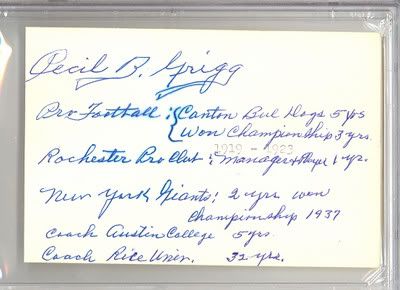 Cecil B. Grigg
Pro Football: { Canton Bul Dogs 5 yrs
Won Championship 3 yrs.
1919 - 1923
Rochester Pro Club: Manager & Player 1 yr.
New York Giants: 2 yrs won
Championship 1937
Coach Austin College 5 yrs.
Coach Rice Univer. 32 yrs.